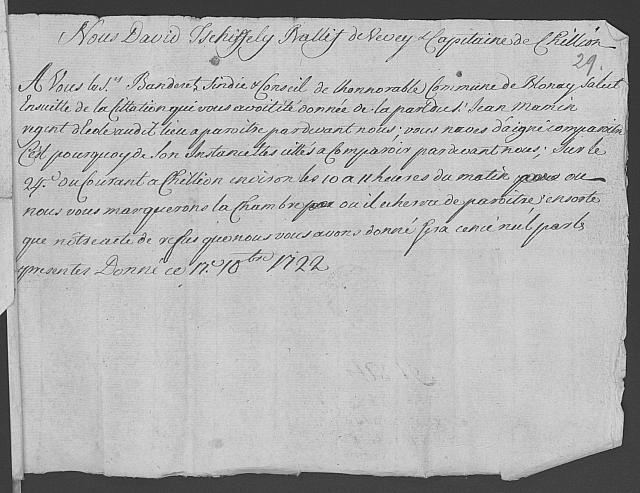 Nous David Tscheffely Ballif de Vevey & Capitaine de Chillion
29.
A Vous les S.rs Banderet, Sindic & Conseil de lhonnorable Commune de Blonay Salut
Ensuitte de la Cittation qui vous avoit été donnée de la part du S.r Jean Mamin
regent d'Ecole audit lieu a paroitre pardevant nous; vous naves daigné comparoitre
C'est pourquoy de son Instance estes cittés a Comparoir pardevant nous; Sur le
24.e du Courant a Chillion environ les 10 a 11 heures du matin ou
nous vous marquerons la Chambre ou il echerra de paroitre; ensorte
que nôtre acte de refus que nous vous avons donné sera censé nul par les
presentes Donné ce 17.e 10bre 1722